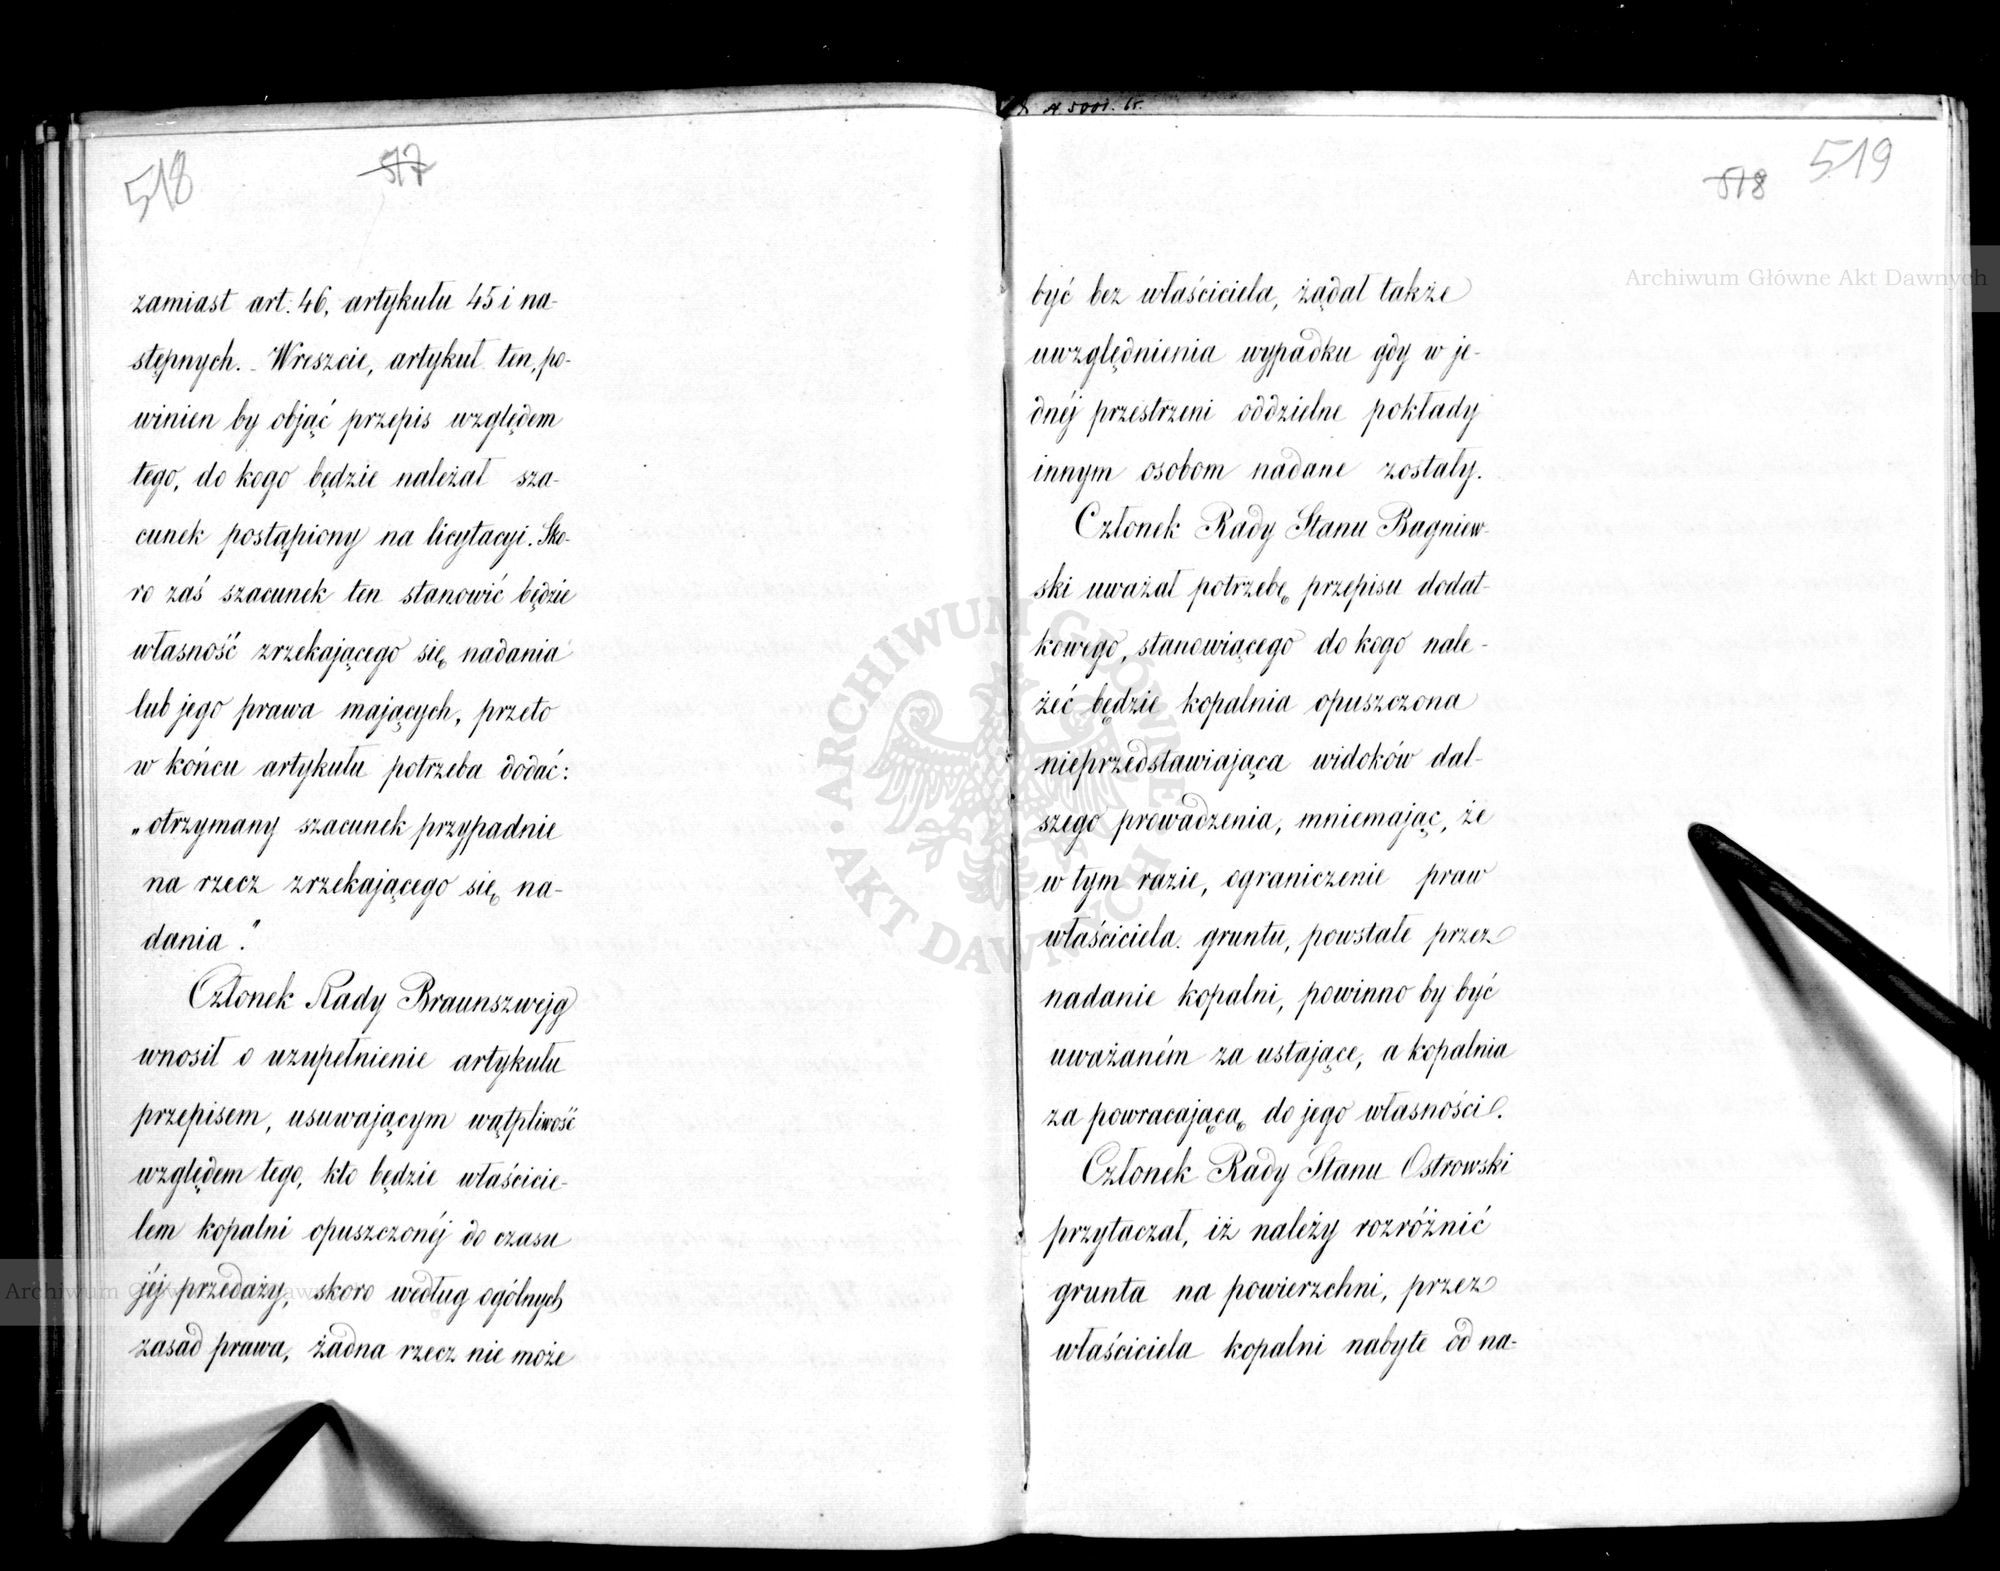 518
517
zamiast art. 46, artykułu 45 i na-
stępnych. - Wreszcie, artykuł ten, po-
winien by objąć przepis względem
tego, do kogo będzie należał sza-
cunek postąpiony na licytacyi. Sko-
ro zaś szacunek ten stanowić będzie
własność zrzekającego się nadania
lub jego prawa mających, przeto
w końcu artykułu potrzeba dodać:
„otrzymany szacunek przypadnie
na rzecz zrzekającego się na-
dania."
Członek Rady Braunszwejg
wnosił o uzupełnienie artykułu
przepisem, usuwającym wątpliwość
względem tego, kto będzie właścicie-
lem kopalni opuszczonéj do czasu
jéj przedaży, skoro według ogólnych
zasad prawa, żadna rzecz nie może
518
519
być bez właściciela, żądał także
uwzględnienia wypadku gdy w je-
dnéj przestrzeni oddzielne pokłady
innym osobom nadane zostały.
Członek Rady Stanu Bagniew-
ski uważał potrzebę przepisu dodat-
kowego, stanowiącego do kogo nale-
żéć będzie kopalnia opuszczona
nieprzedstawiająca widoków dal-
szego prowadzenia, mniemając, że
w tym razie, ograniczenie praw
właściciela gruntu, powstałe przez
nadanie kopalni, powinno by być
uważaném za ustające, a kopalnia
za powracającą do jego własności.
Członek Rady Stanu Ostrowski
przytaczał, iż należy rozróżnić
grunta na powierzchni, przez
właściciela kopalni nabyte od na-
Archiwum Główne Akt Dawnych
Archiwum Główne Akt Dawnych
ARCHIWUM GŁÓWNE
AKT DAWNYCH